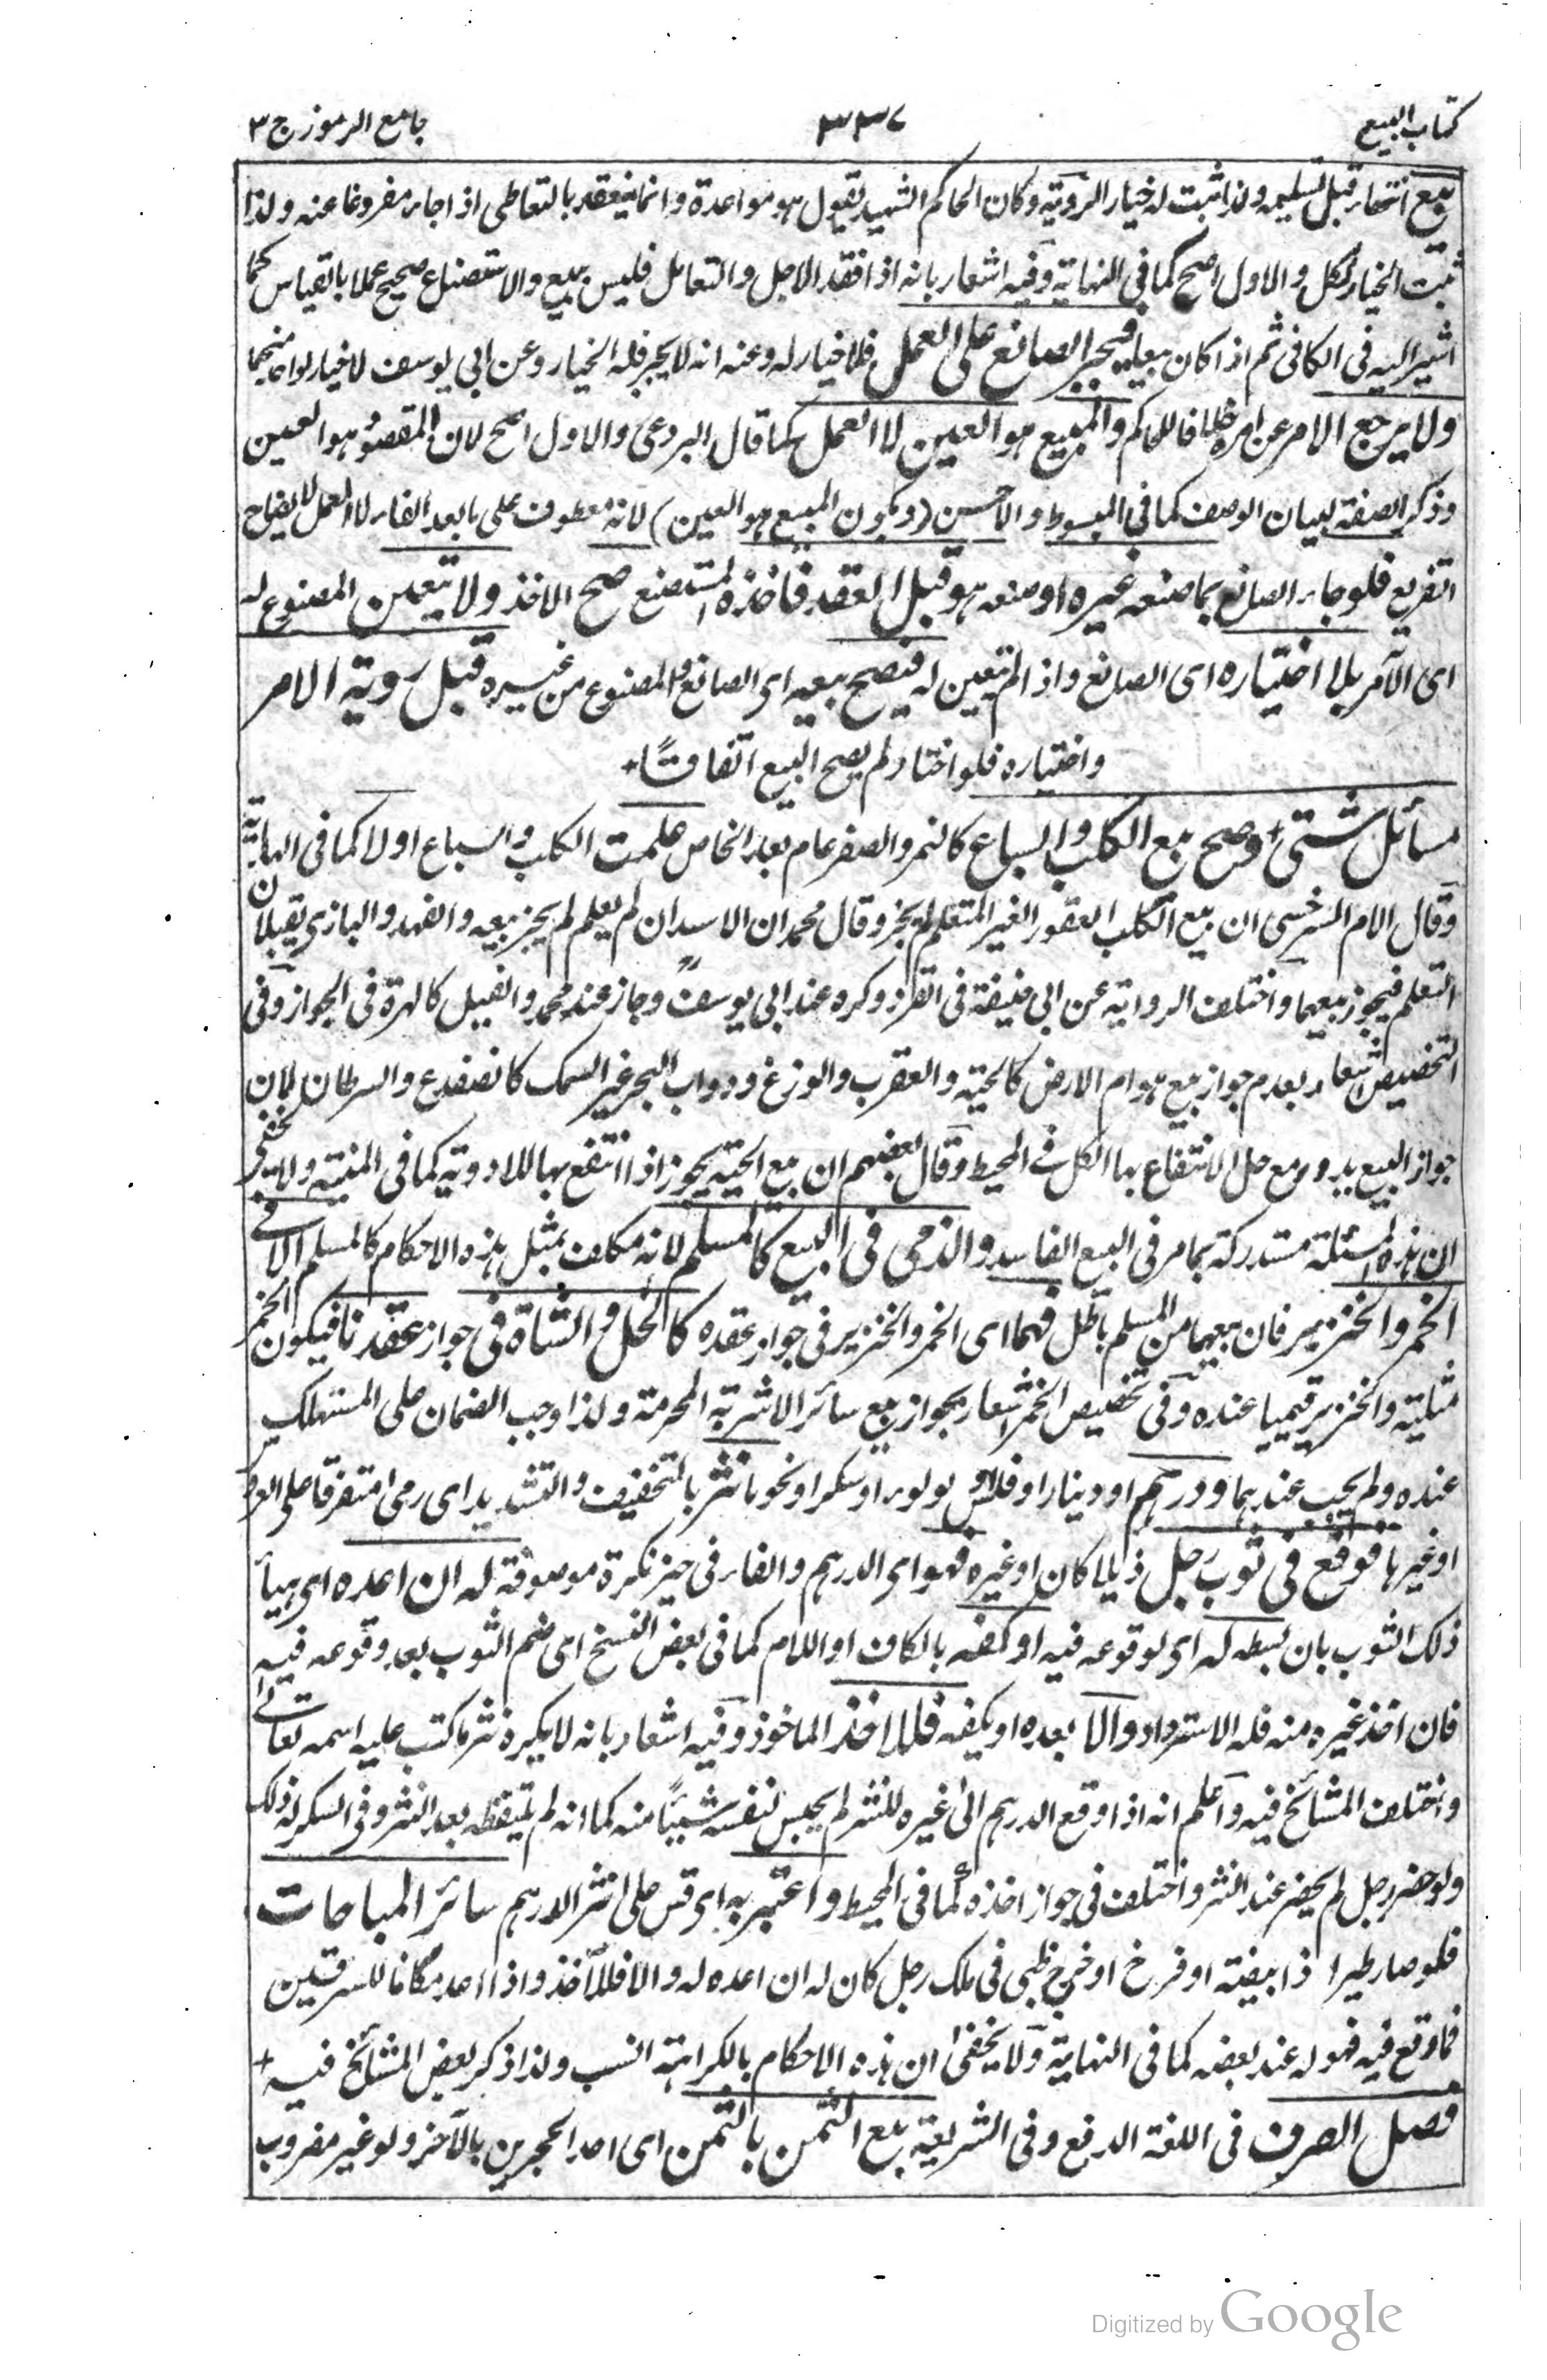 كتاب البيع ٣٣٧ جامع الرموز ج ٣
بيع انتهاء قبل تسليمه ولذا ثبت له خيار الروية وكان الحاكم الشهيد يقول هو مواعدة وانما ينعقد بالتعاطى اذا جاء مفروغا عنه ولذا
ثبت الخيار لكل والاول اصح كما فى النهاية وفيه اشعار بانه اذا فقد الاجل والتعامل فليس ببيع والاستصناع صحيح عملا بالقياس كما
اشير اليه فى الكافى ثم اذا كان بيعا فيجبر الصانع على العمل فلا خيار له وعنه انه لا يجبر فله الخيار وعن ابى يوسف لا خيار لواحد منهما
ولا يرجع الامر عن امره خلافا للحاكم والمبيع هو العين لا العمل كما قال البردعى والاول اصح لان المقصود هو العين
وذكر الصنعة لبيان الوصف كما فى المبسوط والاحسن (ويكون المبيع هو العين) لانه معطوف على ما بعد الفاء لا العمل لايضاح
التفريع فلو جاء الصانع بما صنعه غيره او صنعه هو قبل العقد فاخذه المستصنع صح الاخذ ولا يتعين المصنوع له
اى الآمر بلا اختياره اى الصانع واذا لم يتعين له فيصح بيعه اى الصانع المصنوع من غيره قبل روية الامر
واختياره فلو اختار لم يصح البيع اتفاقًا +
مسائل شتى + وصح بيع الكلب والسباع كالنمر والصقر عام بعد الخاص علمت الكلب والسباع اولا كما فى النهاية
وقال الامام السرخسى ان بيع الكلب العقور الغير المتعلم لم يجز وقال محمد ان الاسد ان لم يعلم لم يجز بيعه والفهد والبازى يقبلان
التعلم فيجوز بيعهما واختلف الرواية عن ابى حنيفة فى القرد وكره عند ابى يوسف وجاز عند محمد والفيل كالهرة فى الجواز وفى
التخصيص اشعار بعدم جواز بيع هوام الارض كالحية والعقرب والوزغ ودواب البحر غير السمك كالضفدع والسرطان لان
جواز البيع يدور مع حل الانتفاع بها الكل فى المحيط وقال بعضهم ان بيع الحية يجوز اذا انتفع بها للادوية كما فى المنية ولا يخفى
ان هذه المسئلة مستدركة بما مر فى البيع الفاسد والذمى فى البيع كالمسلم لانه مكلف بمثل هذه الاحكام كالمسلم الا فى
الخمر والخنزير فان بيعهما من المسلم باطل فهما اى الخمر والخنزير فى جواز عقده كالخل والشاة فى جواز عقدنا فيكون الخمر
مثلية والخنزير قيميا عنده وفى تخصيص الخمر اشعار بجواز بيع سائر الاشربة المحرمة ولذا وجب الضمان على المستهلك
عنده ولم يجب عندهما ودرهم او دينار او فلس او لؤلؤ او سكر او نحوها نثر بالتخفيف والتشديد اى رمى متفرقا على العرس
او غيرها فوقع فى ثوب رجل ذيلا كان او غيره فهو اى الدرهم والفاء فى حيز نكرة موصوفة له ان اعده اى هيأ
ذلك الثوب بان بسطه له اى لوقوعه فيه او كفه بالكاف او اللام كما فى بعض النسخ اى ضم الثوب بعد وقوعه فيه
فان اخذ غيره منه فله الاسترداد والا يعده او يكفه فللاخذ الماخوذ وفيه اشعار بانه لا يكره نثر ما كتب عليه اسمه تعالى
واختلف المشائخ فيه واعلم انه اذا وقع الدرهم الى غيره للنثر لم يحبس لنفسه شيئًا منه كما انه لم يلتقطه بعد النثر وفى السكر له ذلك
ولو حضر رجل لم يحضر عند النثر واختلف فى جواز اخذه كما فى المحيط واعتبر به اى قس على نثر الدرهم سائر المباحات
فلو صار طيرا ذا بيضة او فرخ او خرج ظبى فى ملك رجل كان له ان اعده له والا فللآخذ واذا اعد مكانا للسرقين
فما وقع فيه فهو له عند بعضه كما فى النهاية ولا يخفى ان هذه الاحكام بالكراهة انسب ولذا ذكر بعض المشائخ فيه +
فصل الصرف فى اللغة الدفع وفى الشريعة بيع الثمن بالثمن اى احد الحجرين بالآخر ولو غير مضروب
Digitized by Google